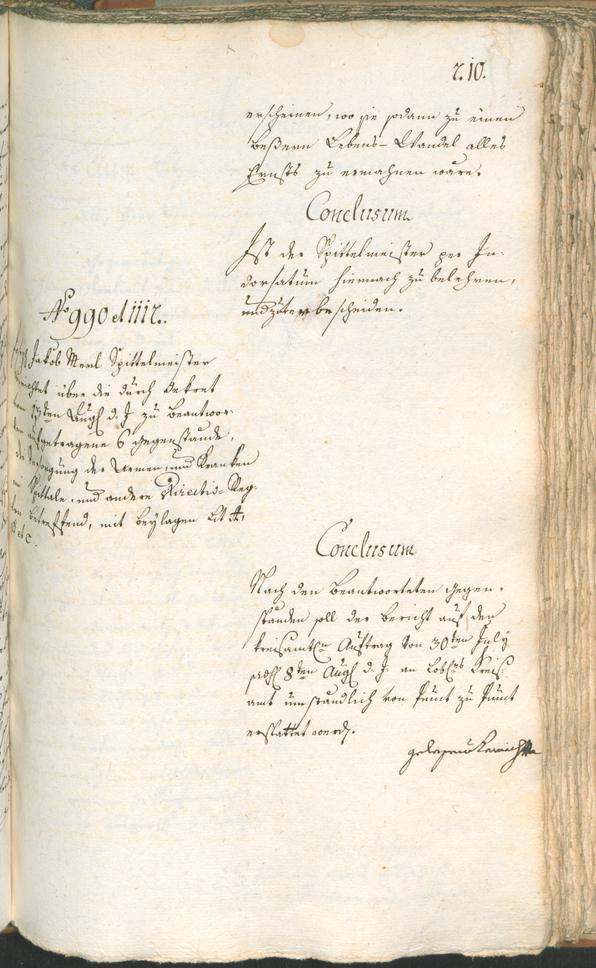 210.
erscheinen, wo sie sodann zu einen
beßern Lebens-Wandel alles
Ernsts zu ermahnen wäre.
Conclusum
Ist der Spittelmeister per In-
dorsatum hiernach zu belehren,
und zu verbescheiden.
No 990 et 1112.
Jakob Merl Spittelmeister
berichtet über die durch Dekret
17ten Augl d. J. zu beantwor
aufgetragene 6 Gegenstände,
die Versorgung der Armen, und Kranken
Spittale, und andere Directiv-Reg:
betreffend, mit beylagen Lit A,
B et C.
Conclusum
Nach den beantworteten Gegen-
ständen soll der bericht auf den
Kreisamtln Auftrag von 30ten July
psto 8ten Augl d. J. an Lobles Kreis-
amt umständlich von Punct zu Punct
erstattet werdn.